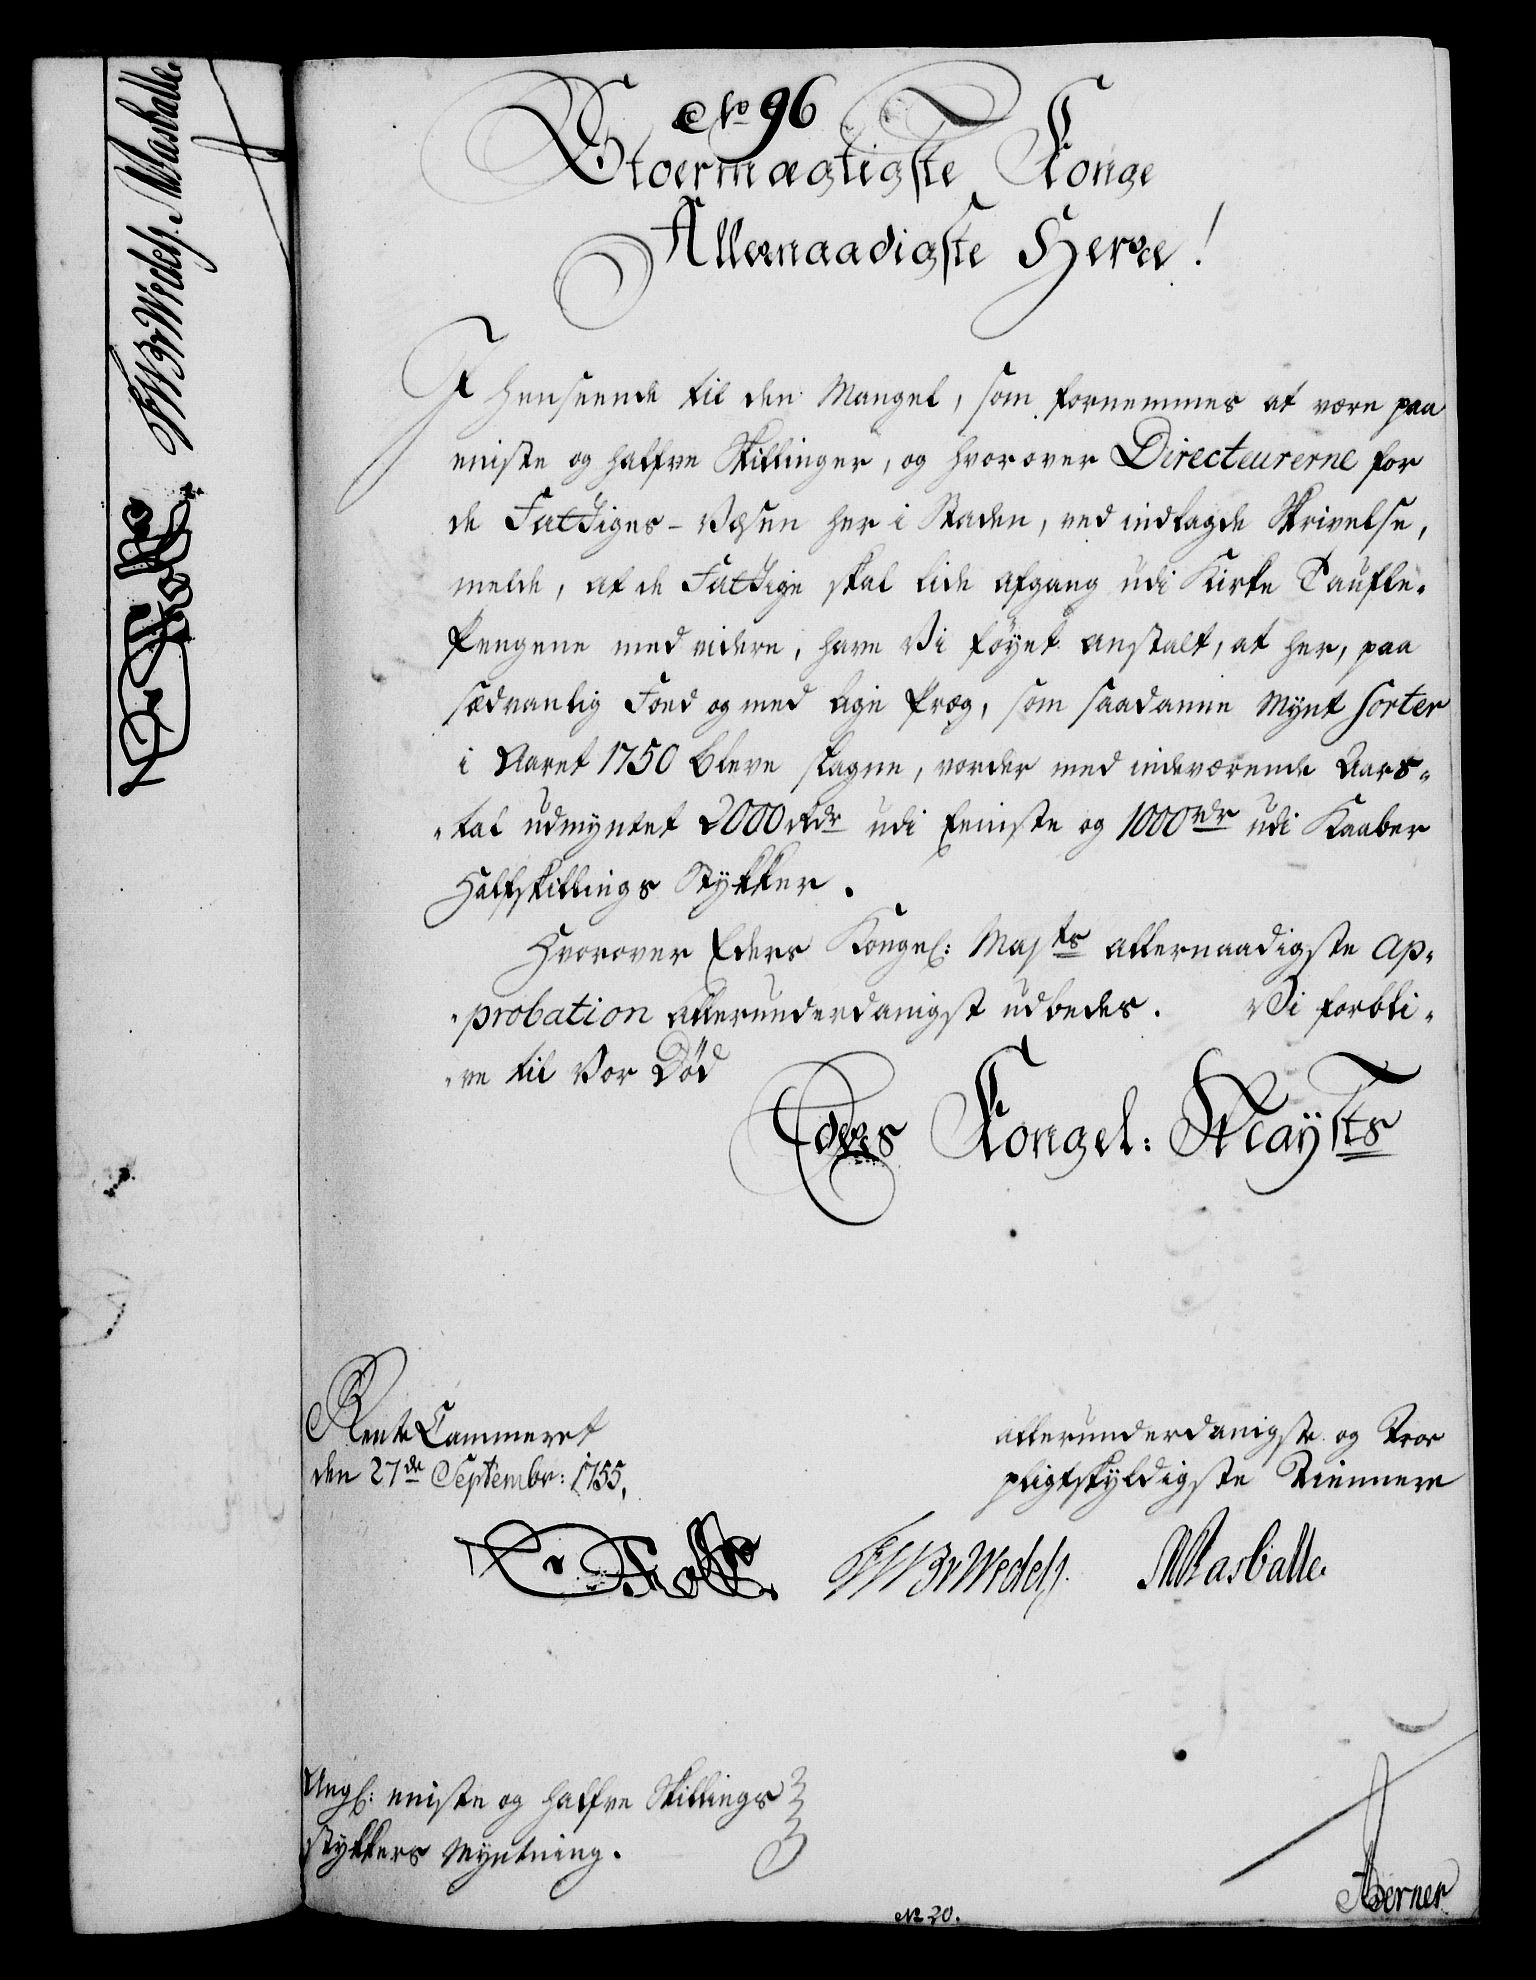 No 96
Stoermægtigste Konge
Allernaadigste Herre!
I Henseende til den Mangel, som fornemmes at være paa
eniste og halfve Skillinger, og hvorover Directeurerne for
de Fattiges-Væsen her i Staden, ved indlagde Skrivelse,
melde, at de Fattige skal lide afgang udi Kirke Taufle-
Pengene med videre, have Vi føyet anstalt, at her, paa
sædvanlig Foed og med lige Præg, som saadanne Mynt Sorter
i Aaret 1750 bleve slagne, vorder med indeværende Aars-
-tal udmyntet 2000 Rdr udi Eeniste og 1000 rdr udi Kaaber
Halfskillings Stykker.
Hvorover Eders Kongel: Majts allernaadigste ap-
-probation allerunderdanigst udbedes. Vi forbli-
-ve til Vor Død
Eders Kongel: Mayts
RenteCammeret
den 27de Septembr: 1755.
allerunderdanigste og Troe
pligtskyldigste Tiennere
Holst. FWBvWedels. Masballe.
Angl: eniste og halfve Skillings
stykkers Myntning.
Berner
No 20.
FWBvWedels. Masballe.